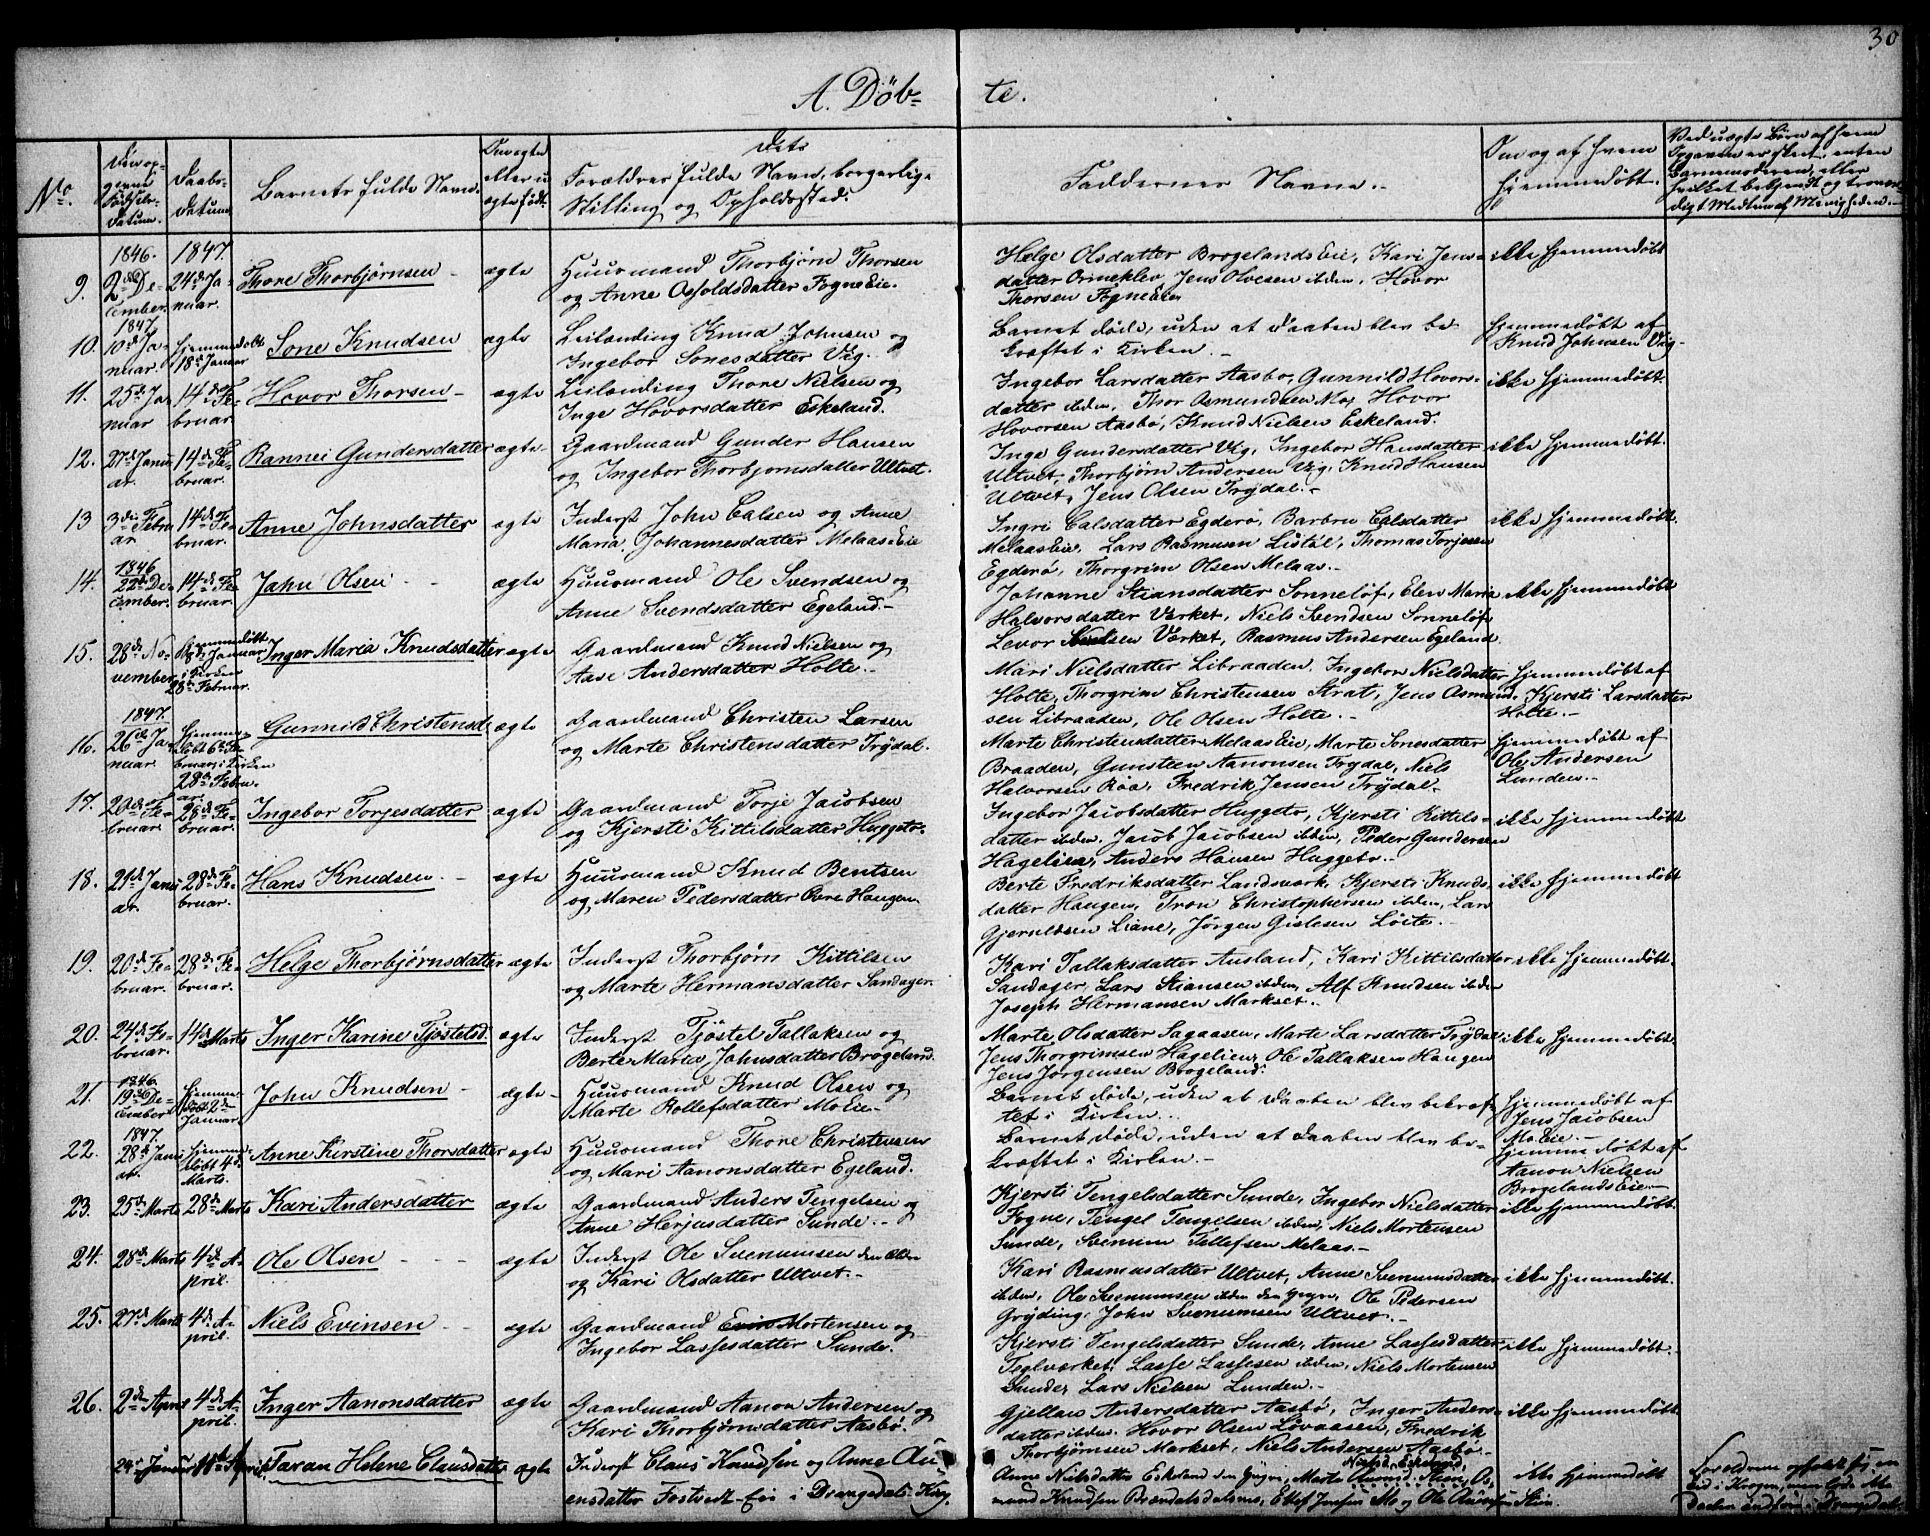 30
A. Døb- te.
No.
Den op-
givne
Fødsels-
Datum.
Daabs-
Datum.
Barnets fulde Navn.
Om ægte
eller u-
ægte født.
Dets
Forældres fulde Navn, borgerlige
Stilling og Opholdssted.
Faddernes Navne.
Om og af hvem
hjemmedøbt.
Ved uægte Børn af hvem
Opgaven er skeet, enten
Barnemoderen, eller
hvilket bekjendt og trovær-
digt Medlem af Menigheden.
9.
1846.
2de De-
cember.
1847.
24de Ja-
nuar.
Thore Thorbjørnsen
ægte
Huusmand Thorbjørn Thorsen
og Anne Osfoldsdatter FogneEie.
Helge Olsdatter BrogelandsEie, Kari Jens-
datter Ormeklev, Jens Olsen ibiden, Hovor
Thorsen FogneEie
ikke hjemmedøbt
10.
1847
10de Ja-
nuar.
hjemmedøbt
18de Januar
Sone Knudsen
ægte
Leilænding Knud Johnsen og
Ingebor Sonesdatter Vig.
Barnet døde, uden at Daaben blev be-
kræftet i Kirken.
hjemmedøbt af
Knud Johnsen Vig
11.
25de Ja-
nuar
14de Fe-
bruar.
Hovor Thorsen
ægte
Leilænding Thore Nielsen og
Inge Hovorsdatter Eskeland.
Ingebor Larsdatter Aasbø, Gunnild Hovors-
datter ibiden, Thor Osmundsen Mo, Hovor
Hovorsen Aasbø, Knud Nielsen Eskeland.
ikke hjemmedøbt.
12.
27de Janu-
ar.
14de Fe-
bruar.
Rannei Gundersdatter
ægte
Gaardmand Gunder Hansen
og Ingebor Thorbjørnsdatter Ultvet.
Inge Gundersdatter Vig, Ingebor Hansdatter
Ultvet, Thorbjørn Andersen Vig, Knud Hansen
Ultvet, Jens Olsen Trydal.
ikke hjemmedøbt.
13
3die Febru-
ar
14de Fe-
bruar.
Anne Johnsdatter
ægte
Inderst John Calsen og Anne
Maria Johannesdatter MelaasEie
Ingri Calsdatter Egderø, Barbru Calsdatter
MelaasEie, Lars Rasmusen Listøl, Thomas Torjesen
Egderø, Thorgrim Olsen Melaas.
ikke hjemmedøbt.
14.
1846
22de De-
cember.
14de Fe-
bruar.
Jahn Olsen
ægte
Huusmand Ole Svendsen og
Anne Svendsdatter Egeland.
Johanne Stiansdatter Sonneløf, Elen Maria
Halvorsdatter Værket, Niels Svendsen Sonneløf,
Levor Værket, Rasmus Andersen Egeland.
ikke hjemmedøbt
15.
28de No-
vember
hjemmedøbt
Januar
i Kirken
28de Februar.
Inger Maria Knudsdatter
ægte
Gaardmand Knud Nielsen og
Aase Andersdatter Holte.
Mari Nielsdatter Libraaden, Ingebor Nielsdatter
Holte, Thorgrim Christensen Strat, Jens Osmund-
sen Libraaden, Ole Olsen Holte.
hjemmedøbt af
Kjersti Larsdatter
Holte.
16.
1847.
26de Ja-
nuar.
hjemme-
døbt 6te Fe-
bruar, i Kirken
28de Febru-
ar.
Gunnild Christensd.
ægte
Gaardmand Christen Larsen
og Marte Christensdatter Trydal.
Marte Christensdatter MelaasEie, Marte Sonesdatter
Braaden, Gunsten Aanonsen Trydal, Niels
Halvorsen Røa, Fredrik Jensen Trydal.
hjemmedøbt af
Ole Andersen
Lunden.
17.
20de Fe-
bruar.
28de Fe-
bruar.
Ingebor Torjesdatter
ægte
Gaardmand Torje Jacobsen
og Kjersti Kittilsdatter Huggetø.
Ingebor Jacobsdatter Huggetø, Kjersti Kittils-
datter ibiden, Jacob Jacobsen ibiden, Peder Gundersen
Hagelien, Anders Hansen Huggetø.
ikke hjemmedøbt
18.
21de Janu-
ar.
28de Fe-
bruar.
Hans Knudsen.
ægte
Huusmand Knud Bentsen
og Maren Pedersdatter Øvre Haugen.
Berte Fredriksdatter Landsverk, Kjersti Knuds-
datter Haugen, Tron Christophersen ibiden, Lars
Gjeruldsen Liane, Jørgen Gislesen Løite.
ikke hjemmedøbt
19.
20de Fe-
bruar.
28de Fe-
bruar.
Helge Thorbjørnsdatter
ægte
Inderst Thorbjørn Kittilsen
og Marte Hermansdatter Sandager.
Kari Tallaksdatter Ausland, Kari Kittilsdatter
Sandager, Lars Stiansen ibiden, Alf Knudsen ibiden
Joseph Hermansen Markset.
ikke hjemmedøbt.
20.
24de Fe-
bruar.
14de Marts
Inger Karine Tjøstelsd.
ægte
Inderst Tjøstel Tallaksen og
Berte Maria Johnsdatter Brogeland.
Marte Olsdatter Sagaasen, Marte Larsdatter Trydal
Jens Thorgrimsen Hagelien, Ole Tallaksen Haugen
Jens Jørgensen Brogeland.
ikke hjemmedøbt.
21.
1846.
19de De-
cember
hjemme-
døbt 2de
Januar.
John Knudsen
ægte
Huusmand Knud Olsen og
Marte Rollefsdatter MoEie.
Barnet døde, uden at Daaben blev bekræf-
tet i Kirken.
hjemmedøbt af
Jens Jacobsen
MoEie.
22.
1847.
28de Janu-
ar.
hjemme-
døbt 4de
Marts.
Anne Kirstine Thorsdatter
ægte
Huusmand Thore Christensen
og Mari Aanonsdatter Egeland.
Barnet døde, uden at Daaben blev be-
kræftet i Kirken.
hjemmedøbt af
Aanon Nielsen
BrogelandsEie
23.
25de Marts
28de Marts
Kari Andersdatter
ægte
Gaardmand Anders Tengelsen og
Anne Herjusdatter Sunde.
Kjersti Tengelsdatter Sunde, Ingebor Nielsdatter
Fogne, Tengel Tengelsen ibiden, Niels Mortensen
Sunde, Svenum Tellefsen Melaas.
ikke hjemmedøbt.
24.
28de Marts
4de A-
pril.
Ole Olsen
ægte
Inderst Ole Svenumsen den ældre
og Kari Olsdatter Ultvet.
Kari Rasmusdatter Ultvet, Anne Svenumsdatter
ibiden, Ole Svenumsen ibiden den yngre, Ole Pedersen
Gryting, John Svenumsen Ultvet.
ikke hjemmedøbt.
25.
27de Marts
4de A-
pril.
Niels Evinsen
ægte
Gaardmand Evin Mortensen og
Ingebor Lassesdatter Sunde.
Kjersti Tengelsdatter Sunde, Anne Lassesdatter
Teglværket, Lasse Lassesen ibiden, Niels Mortensen
Sunde, Lars Nielsen Lunden.
ikke hjemmedøbt.
26.
2den April
4de A-
pril.
Inger Aanonsdatter
ægte
Gaardmand Aanon Andersen og
Kari Thorbjørnsdatter Aasbø.
Gjellaus Andersdatter Aasbø, Inger Anders-
datter ibiden, Hovor Olsen Løvaasen, Fredrik
Thorbjørnsen Markset, Niels Andersen Aasbø.
ikke hjemmedøbt.
24de Januar
11te April
Taran Helene Clausdatter
ægte
Inderst Claus Knudsen og Anne Au-
ensdatter Fostvedt-Eie i Drangedals
Anne Nielsdatter Eskeland den yngre, Marte Stein, Os-
mund Knudsen Brændalsdalsmo, Ellef Jensen Mo og Ole Stein
ikke hjemmedøbt
Forældrene opholdt sig en
tid i Krogen, men lod
Daaben udføre i Drangedal.